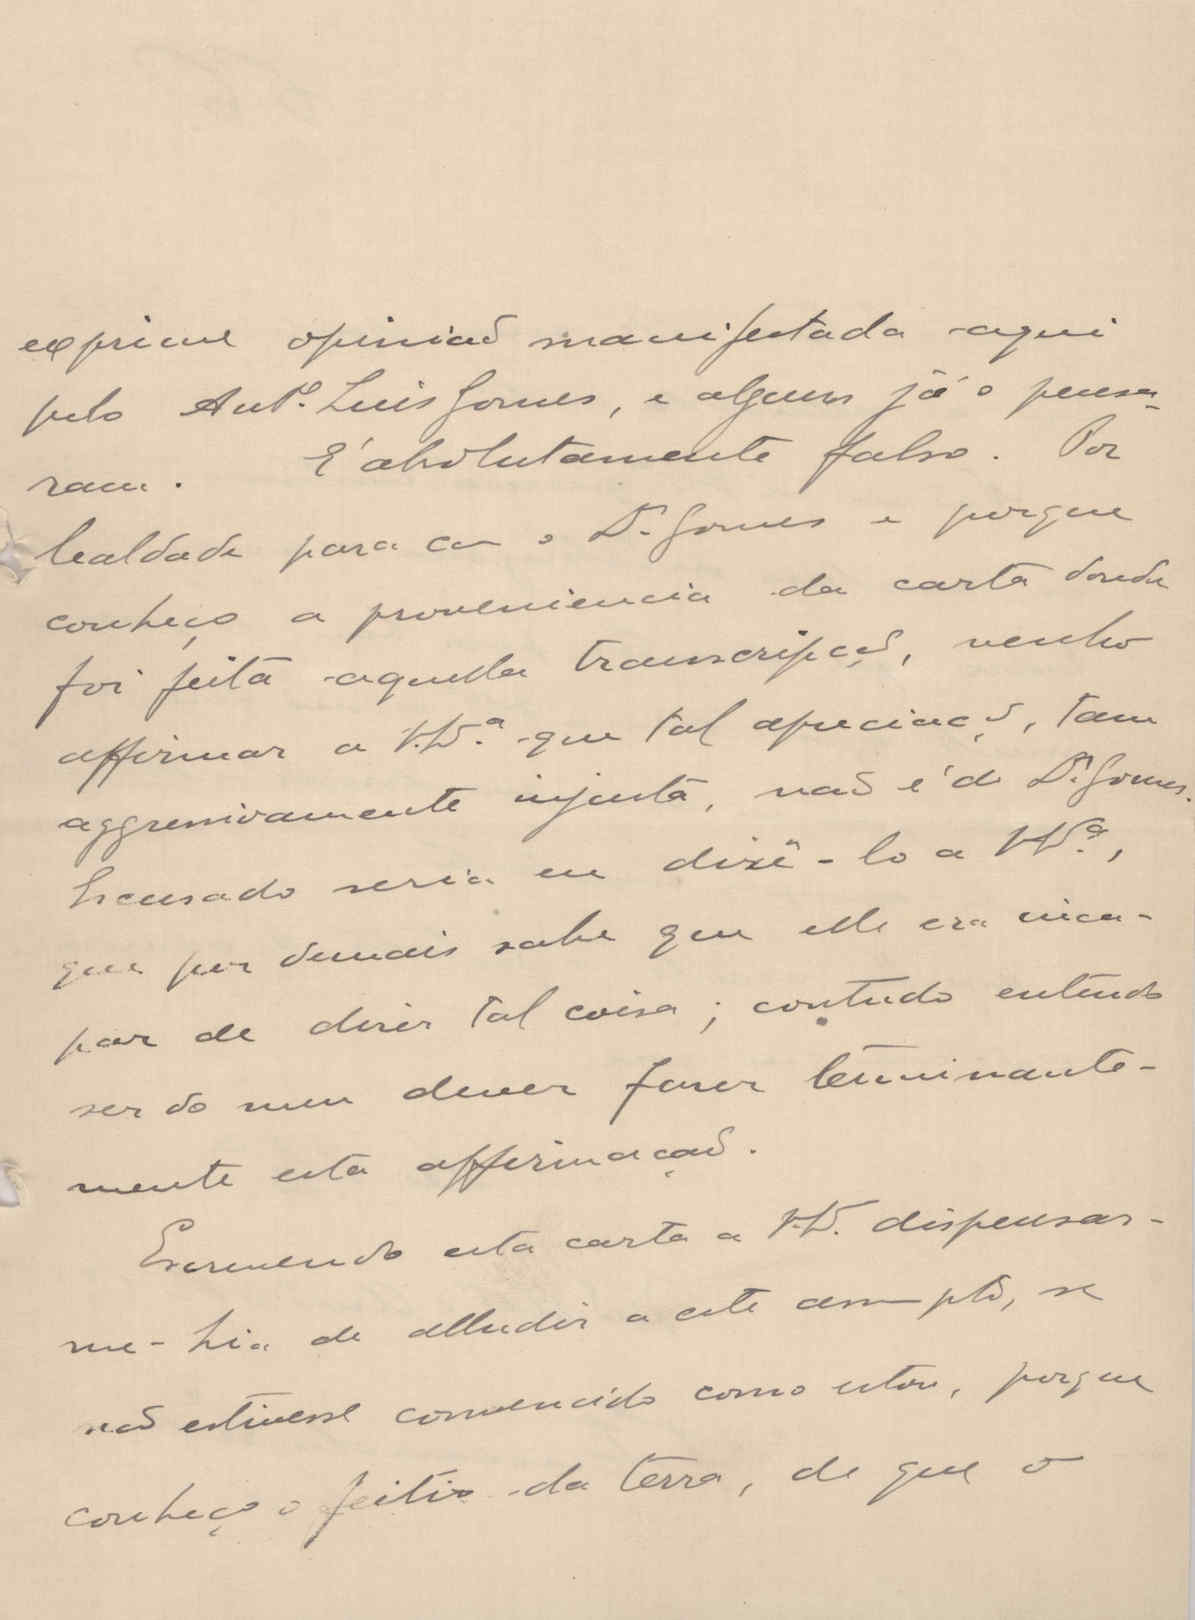 exprime opinião manifestada aqui
pelo Antº. Luis Gomes, e alguns já o pensa-
ram. É absolutamente falso. Por
lealdade para com o Dr. Gomes e porque
conheço a proveniencia da carta donde
foi feita aquella transcripção, venho
affirmar a V. Ex.ª que tal apreciação, tam
aggressivamente injusta, não é do Dr. Gomes.
Escusado seria eu dizê-lo a V. Ex.ª,
que por demais sabe que elle era inca-
paz de dizer tal coisa; contudo entendo
ser do meu dever fazer terminante-
mente esta affirmação.
Escrevendo esta carta a V. Ex. dispensar-
me-hia de alludir a este assumpto, se
não estivesse convencido como estou, porque
conheço o feitio da terra, de que o